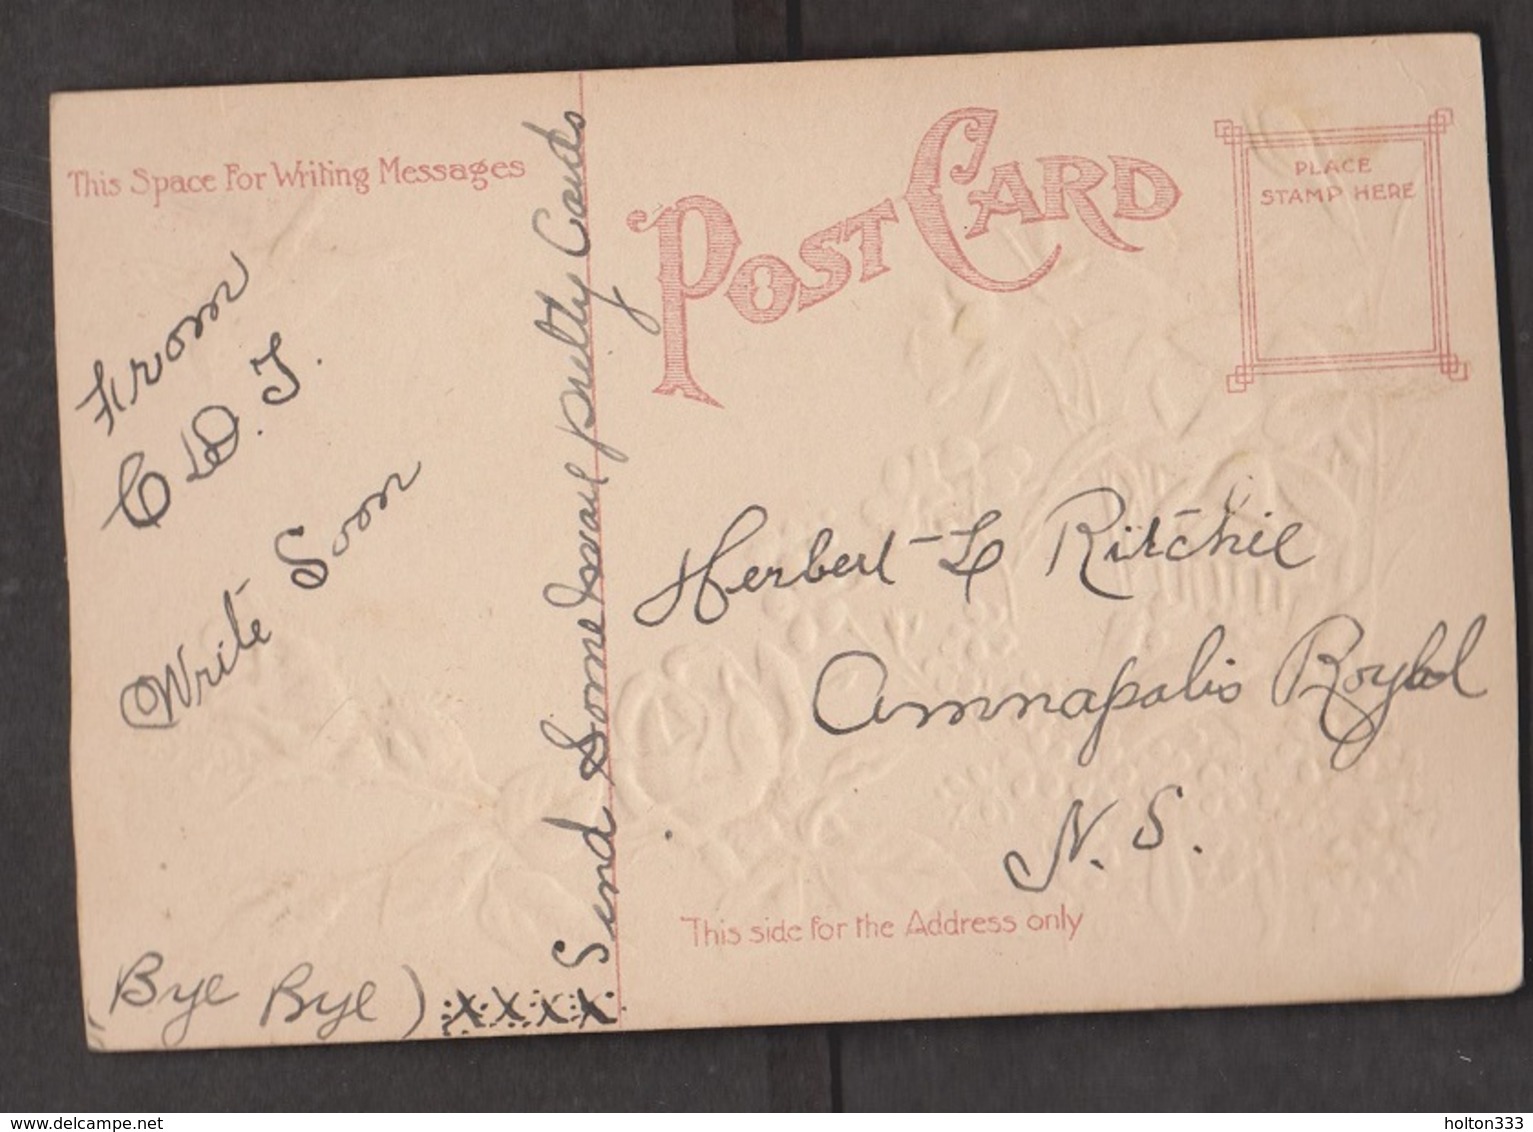 This Space For Writing Messages
From
C D. J.
Write Soon
(Bye Bye) xxxx
Send Some pretty Cards
POST CARD
PLACE
STAMP HERE
Herbert L Ritchie
Annapolis Royal
N. S.
This side for the Address only
www.delcampe.net
holton333